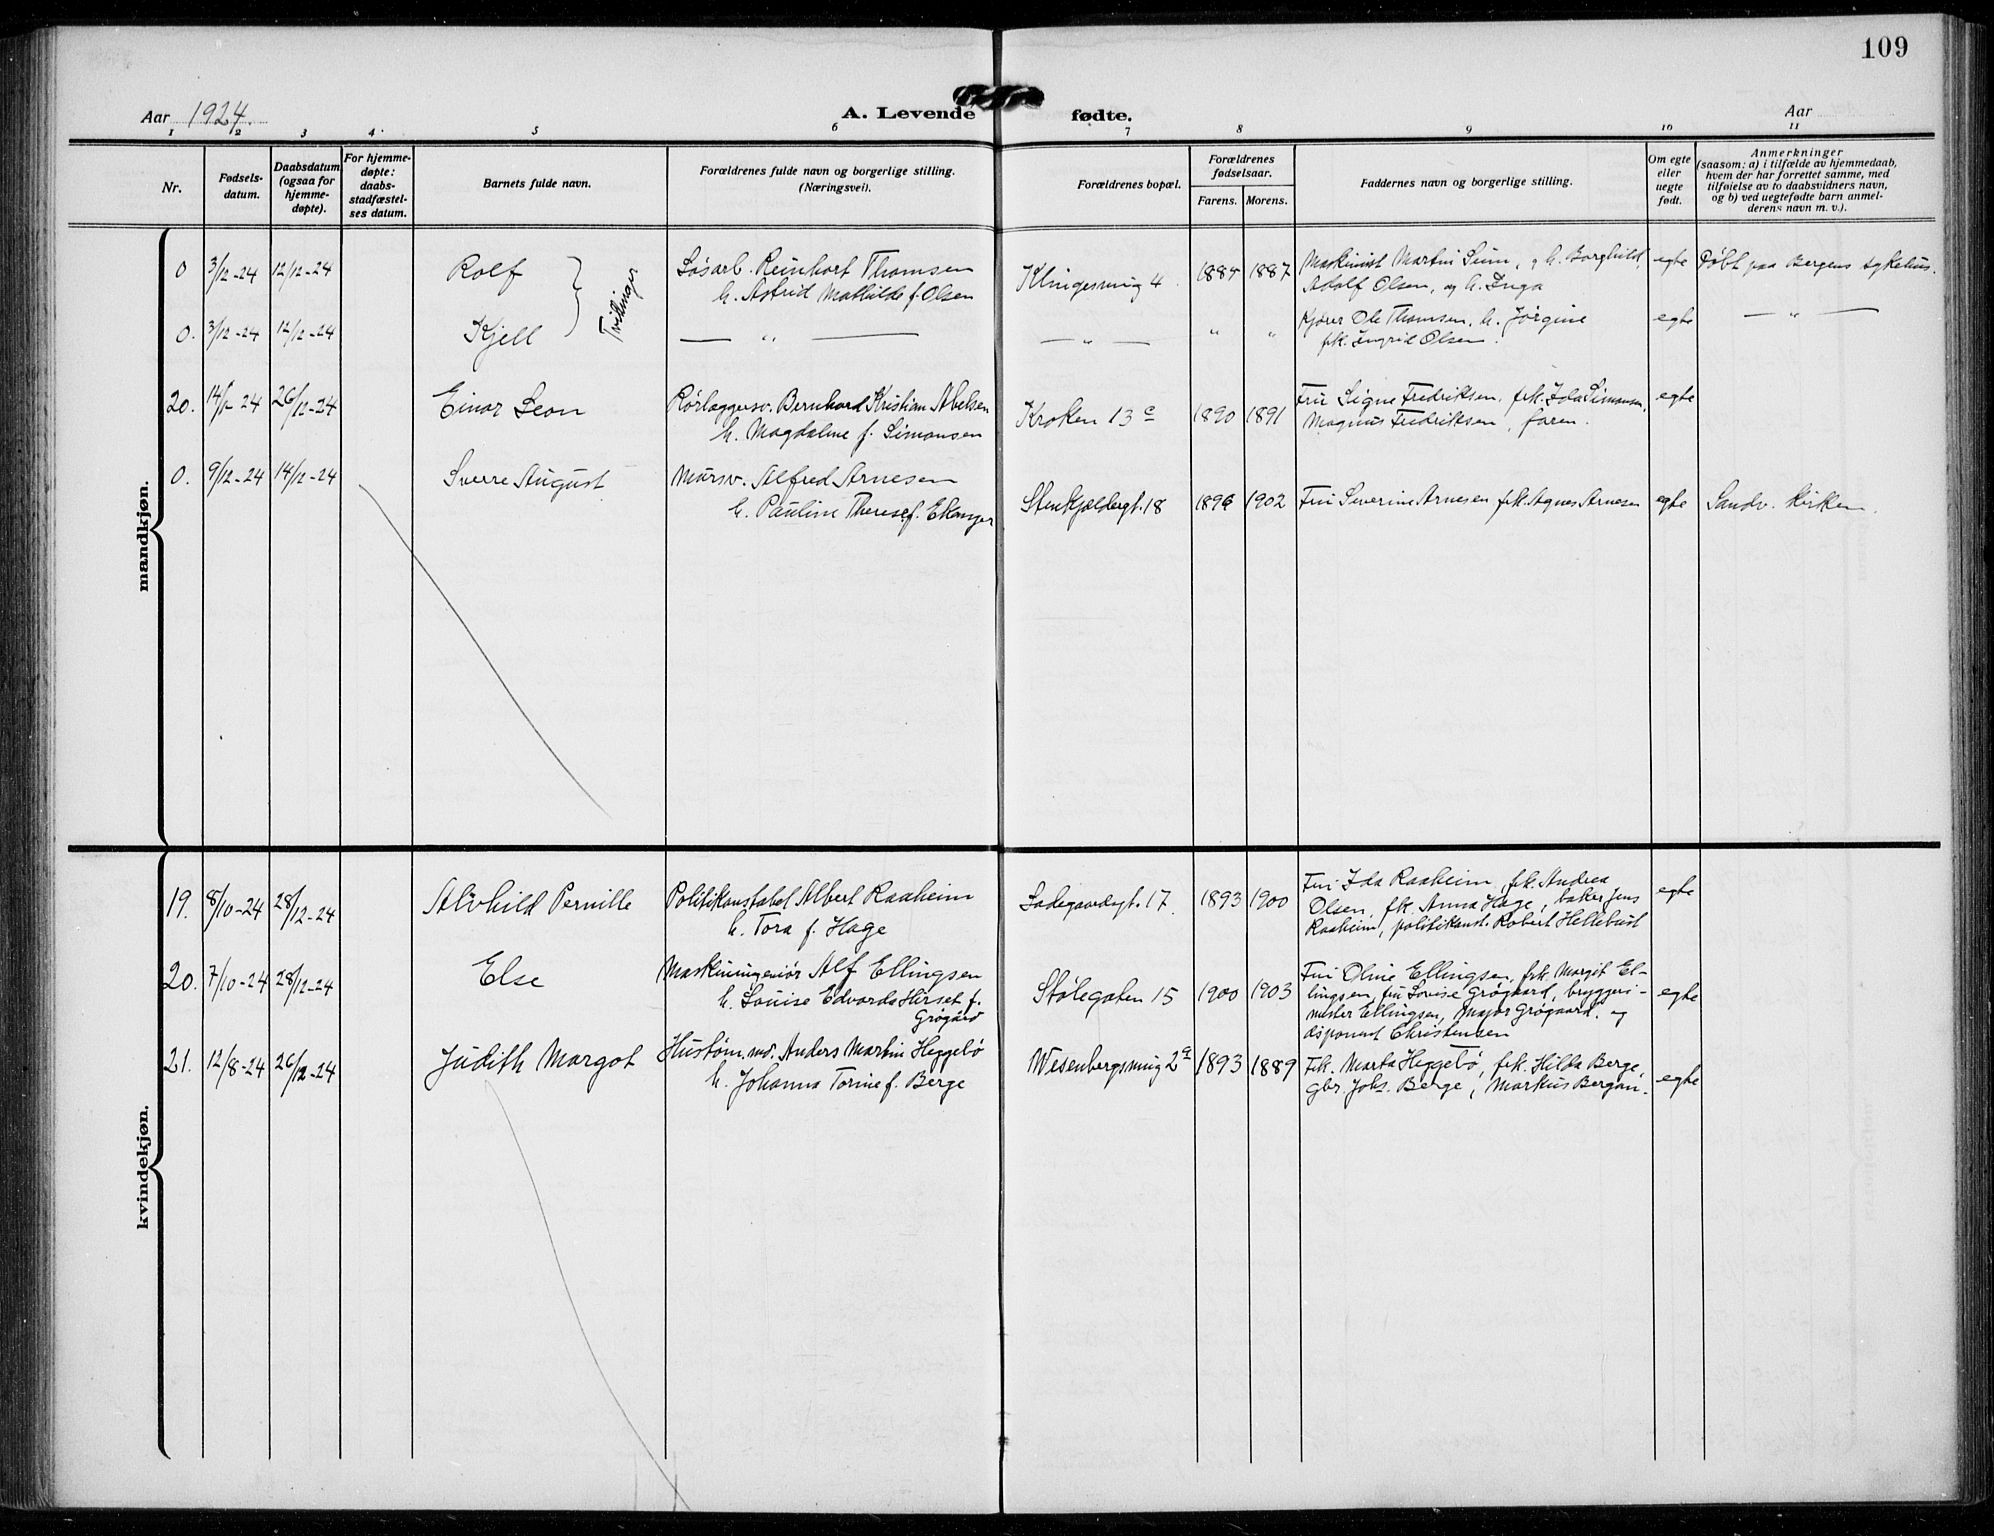 109
Aar 1924.
A. Levende fødte.
Aar
1 2 3 4 5 6 7 8 9 10 11
Nr.
Fødsels-
datum.
Daabsdatum
(ogsaa for
hjemme-
døpte).
For hjemme-
døpte:
daabs-
stadfæstel-
ses datum.
Barnets fulde navn.
Forældrenes fulde navn og borgerlige stilling.
(Næringsvei).
Forældrenes bopæl.
Forældrenes
fødselsaar.
Farens. Morens.
Faddernes navn og borgerlige stilling.
Om egte
eller
uegte
født.
Anmerkninger
(saasom: a) i tilfælde av hjemmedaab,
hvem der har forrettet samme, med
tilføielse av to daabsvidners navn,
og b) ved uegtefødte barn anmel-
derens navn m. v.).
mandkjøn.
0 3/12-24 12/12-24 Rolf Løsarb. Reinhart Thomsen
h. Astrid Mathilde f. Olsen
Klingesmug 4 1884 1887
Maskinist Martin Sunn, og h. Borghild,
Adolf Olsen, og h. Inga
egte Døbt paa Bergens sykehus.
Tvillinger
0. 3/12-24 12/12-24 Kjell — " — — " — " "
Kjører Ole Thomsen, h. Jørgine
frk. Ingrid Olsen.
egte — " —
20. 14/1-24 26/12-24 Einar Leon Rørlæggersv. Bernhard Kristian Abelsen
h. Magdalene f. Simonsen
Kroken 13 c 1890 1891
Fru Signe Fredriksen, frk. Ida Simonsen,
Magnus Fredriksen, faren.
egte
0. 9/12-24 14/12-24 Sverre August Mursv. Alfred Arnesen
h. Pauline Therese f. Ekanger
Stenkjeldergt. 18 1896 1902 Fru Severine Arnesen frk. Agnes Arnesen egte Sandv. kirken.
kvindekjøn.
19. 8/10-24 28/12-24 Alvhild Pernille Politikonstabel Albert Raaheim
h. Tora f. Hage
Ladegaardsgt. 17. 1893 1900
Fru Ida Raaheim, frk. Andrea
Olsen, frk. Anna Hage, baker Jens
Raaheim, politikonst. Robert Hellebust
egte
20. 7/10-24 28/12-24 Else Maskiningeniør Alf Ellingsen
h. Louise Edvarda Hirset f.
Grøgård
Stølegaten 15 1900 1903
Fru Oline Ellingsen, frk. Margit El-
lingsen, fru Lovise Grøgaard, bryggeri-
mester Ellingsen, Major Grøgaard, og
disponent Christensen
egte
21. 12/8-24 26/12-24 Judith Margot Hustøm.md. Anders Martin Heggebø
h. Johanna Torine f. Berge
Wesenbergsmug 2a 1893 1889
Frk. Marta Heggebø, frk. Hilda Berge,
Gbr. Johs. Berge, Markus Bergan.
egte